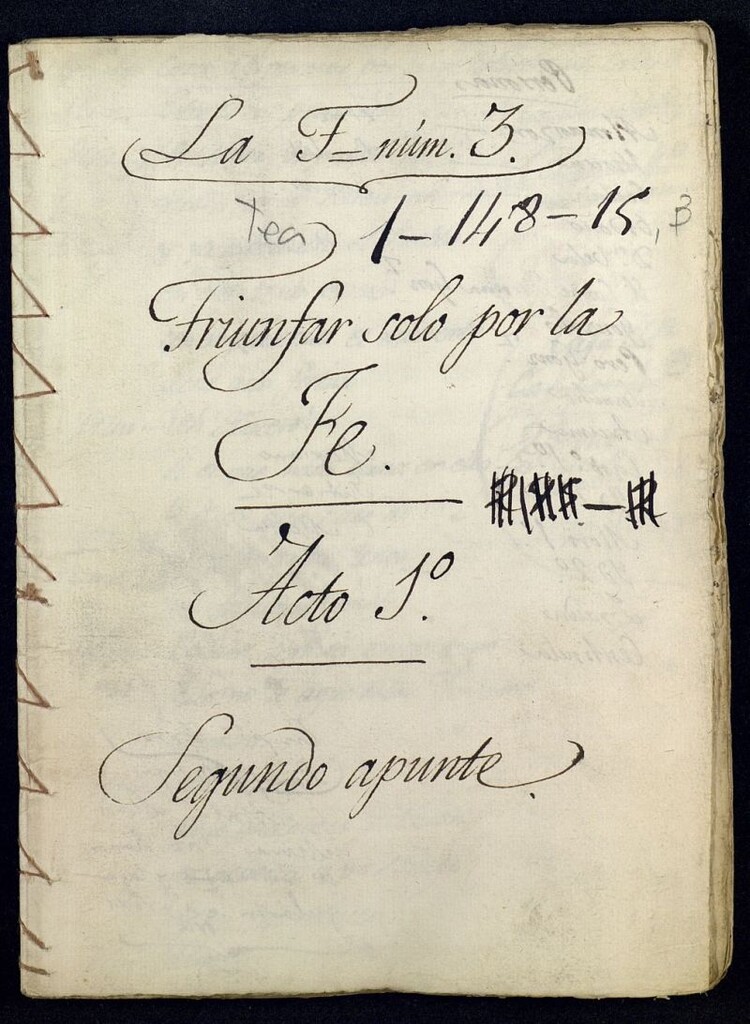 La F= núm. 3.
Tea 1-148-15, B
Triunfar solo por la
Fe.
Acto 1º.
Segundo apunte.